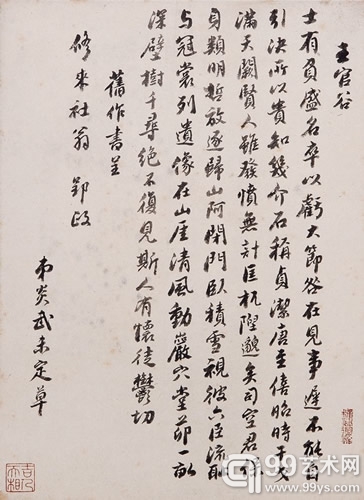 王官谷
士有負盛名卒以虧大節咎在見事遲不能自
引決所以貴知幾介石稱貞潔唐至僖昭時干戈
滿天闕賢人雖發憤無計匡杌隉邈矣司空君保
身類明哲放逐歸山阿閉門臥積雪視彼六臣流恥
与冠裳列遺像在山厓清風動巖穴堂茆一畝
深壁樹千尋絕不復見斯人有懷徒鬱切
舊作書呈
修來社翁 郢政
弟炎武未定草
99艺术网
www.99ys.com